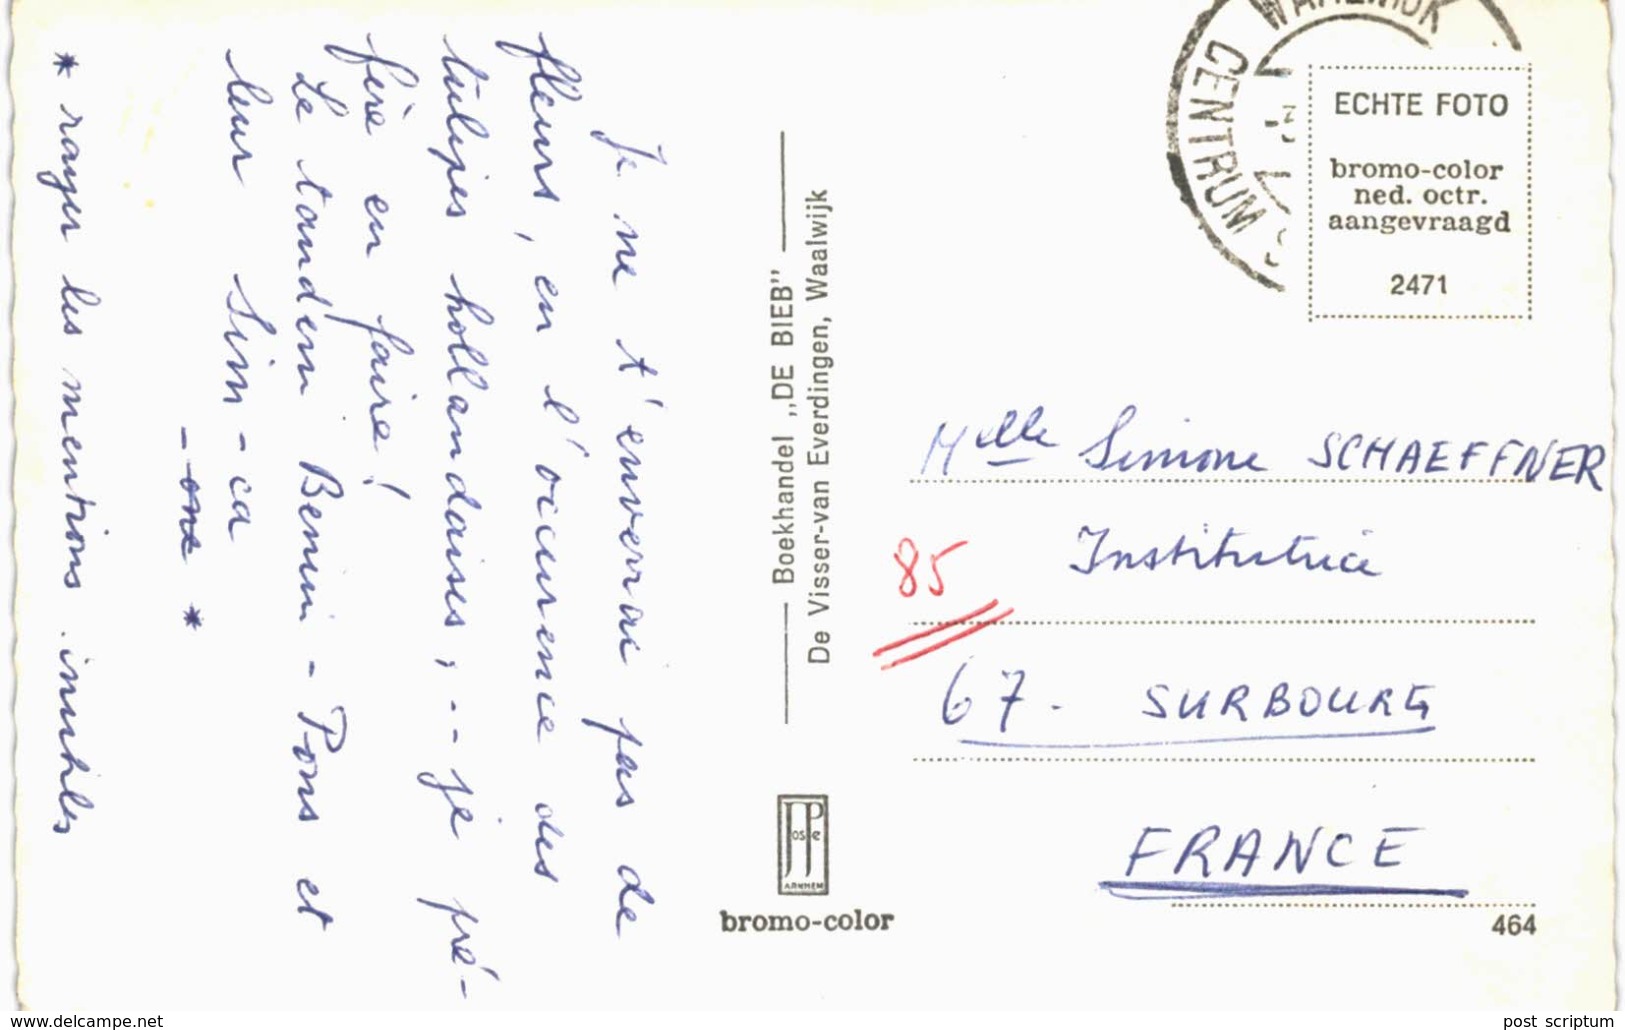 Je ne t'enverrai pas de
fleurs, en l'occurence des
tulipes hollandaises, -- je pré-
fère en faire!
Le tandem Benini - Pons et
leur Sim - ca
- one *
* rayer les mentions inutiles
Boekhandel „DE BIEB"
De Visser-van Everdingen, Waalwijk
JosPe
ARNHEM
bromo-color
WAALWIJK
CENTRUM
ECHTE FOTO
bromo-color
ned. octr.
aangevraagd
2471
Melle Simone SCHAEFFNER
Institutrice
85
67 - SURBOURG
FRANCE
464
www.delcampe.net
post scriptum